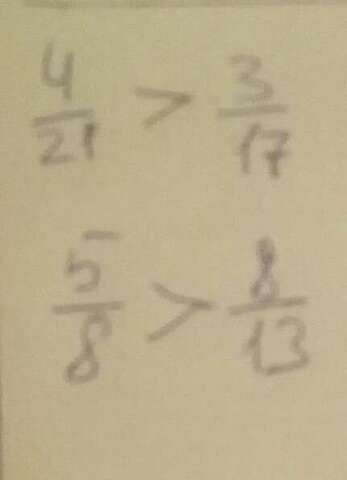 4/21 > 3/17
5/8 > 8/13